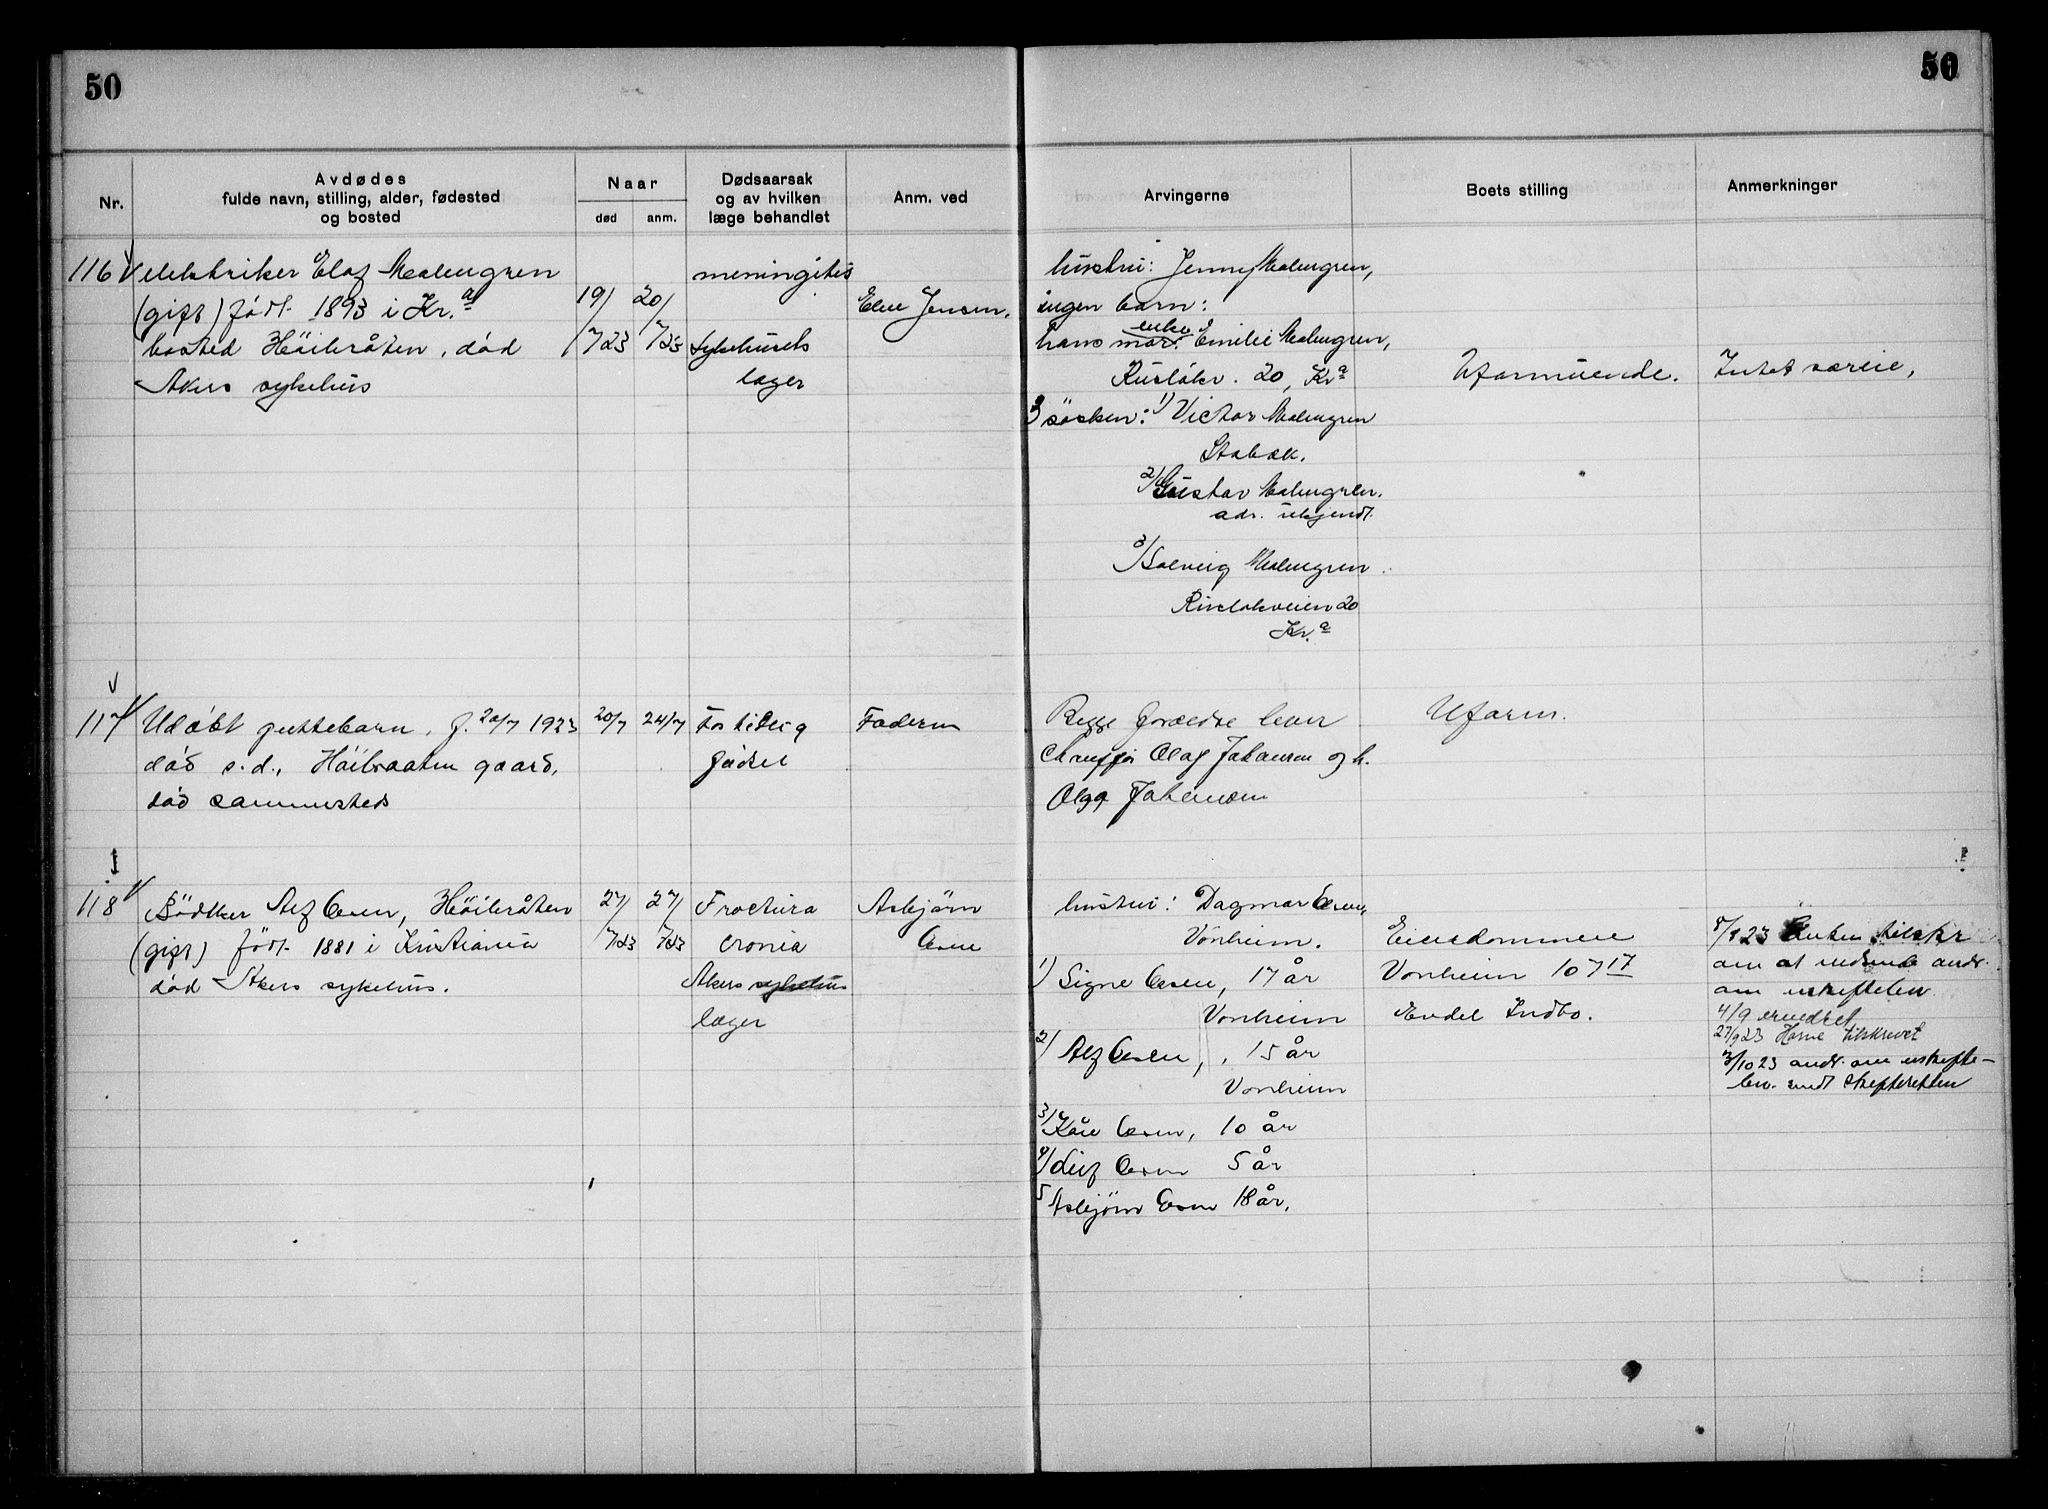 50
50
Nr.
Avdødes
fulde navn, stilling, alder, fødested
og bosted
Naar
død
anm.
Dødsaarsak
og av hvilken
læge behandlet
Anm. ved
Arvingerne
Boets stilling
Anmerkninger
116 elektriker Elof Malmgren
(gift) født 1893 i Kr.a
bosted Höibråten, død
Akers sykehus
19/7 23
20/7 23
meningitis
Sykehusets
læger
Jensen.
hustru: Jenny Malmgren,
ingen barn:
hans mor: enke Emilie Malmgren,
20, Kr.a
3 søsken: 1) Victor Malmgren
Stabæk.
2) Gustav Malmgren.
adr. ukjendt.
3) Solveig Malmgren
20
Kr.a
Uformuende.
Intet særeie,
117 Udøbt guttebarn, f. 20/7 1923
død s.d., Høibraaten gaard,
død sammesteds
20/7
24/7
For tidlig
fødsel
Faderen
Begge forældre lever
Chauffør Olaf Johansen og h.
Olga Johansen
Uform.
118 Bödker Alf Olsen, Höibråten
(gift) født 1881 i Kristiania
død Akers sykehus.
27/7 23
27/7 23
Fractura
cronia
Akers sykehus
læger
Asbjörn
Olsen
hustru: Dagmar Olsen,
Vonheim.
1) Signe Olsen, 17 år
Vonheim
2) Alf Olsen, 15 år
Vonheim
3) Kåre Olsen, 10 år
4) Leif Olsen 5 år
5 Asbjörn Olsen 18 år.
Eiendommen
Vonheim 107 17
Endel Indbo.
8/9 23 Enken tilskr
om at indsende andr.
om uskiftebev.
4/9
27/9 23 tilskrevet
3/10 23 andr. om uskifte-
bev. sendt skifteretten